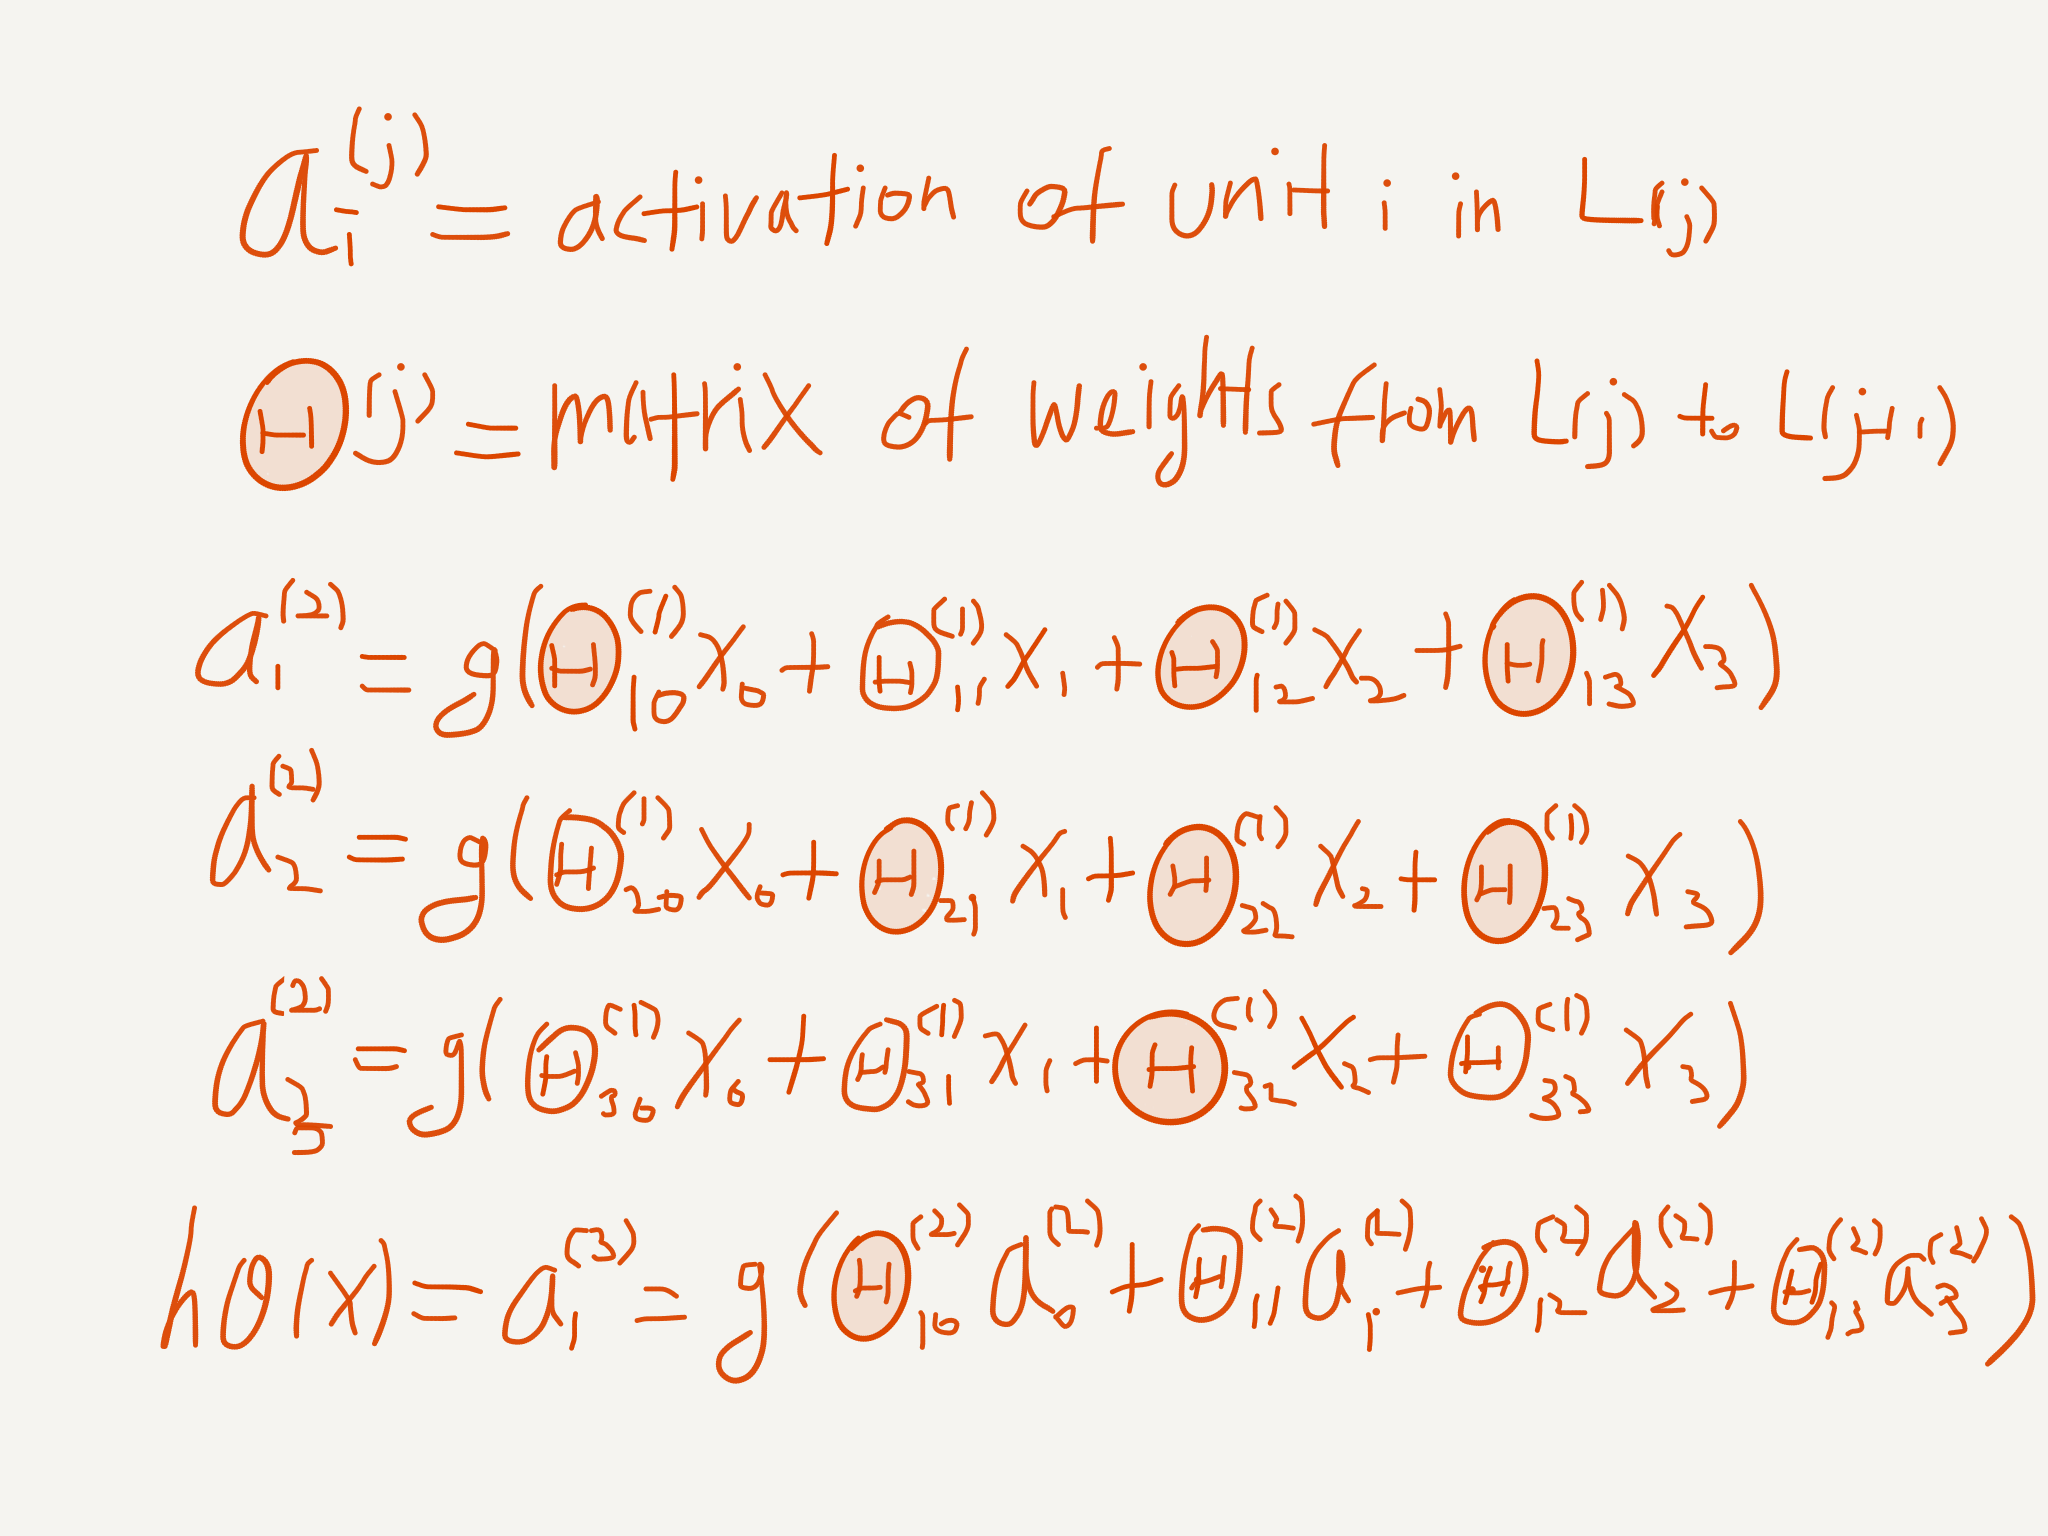 a_i^(j) = activation of unit i in L(j)
Θ^(j) = matrix of weights from L(j) to L(j+1)
a_1^(2) = g(Θ_10^(1) x_0 + Θ_11^(1) x_1 + Θ_12^(1) x_2 + Θ_13^(1) x_3)
a_2^(2) = g(Θ_20^(1) x_0 + Θ_21^(1) x_1 + Θ_22^(1) x_2 + Θ_23^(1) x_3)
a_3^(2) = g(Θ_30^(1) x_0 + Θ_31^(1) x_1 + Θ_32^(1) x_2 + Θ_33^(1) x_3)
hθ(x) = a_1^(3) = g(Θ_10^(2) a_0^(2) + Θ_11^(2) a_1^(2) + Θ_12^(2) a_2^(2) + Θ_13^(2) a_3^(2))